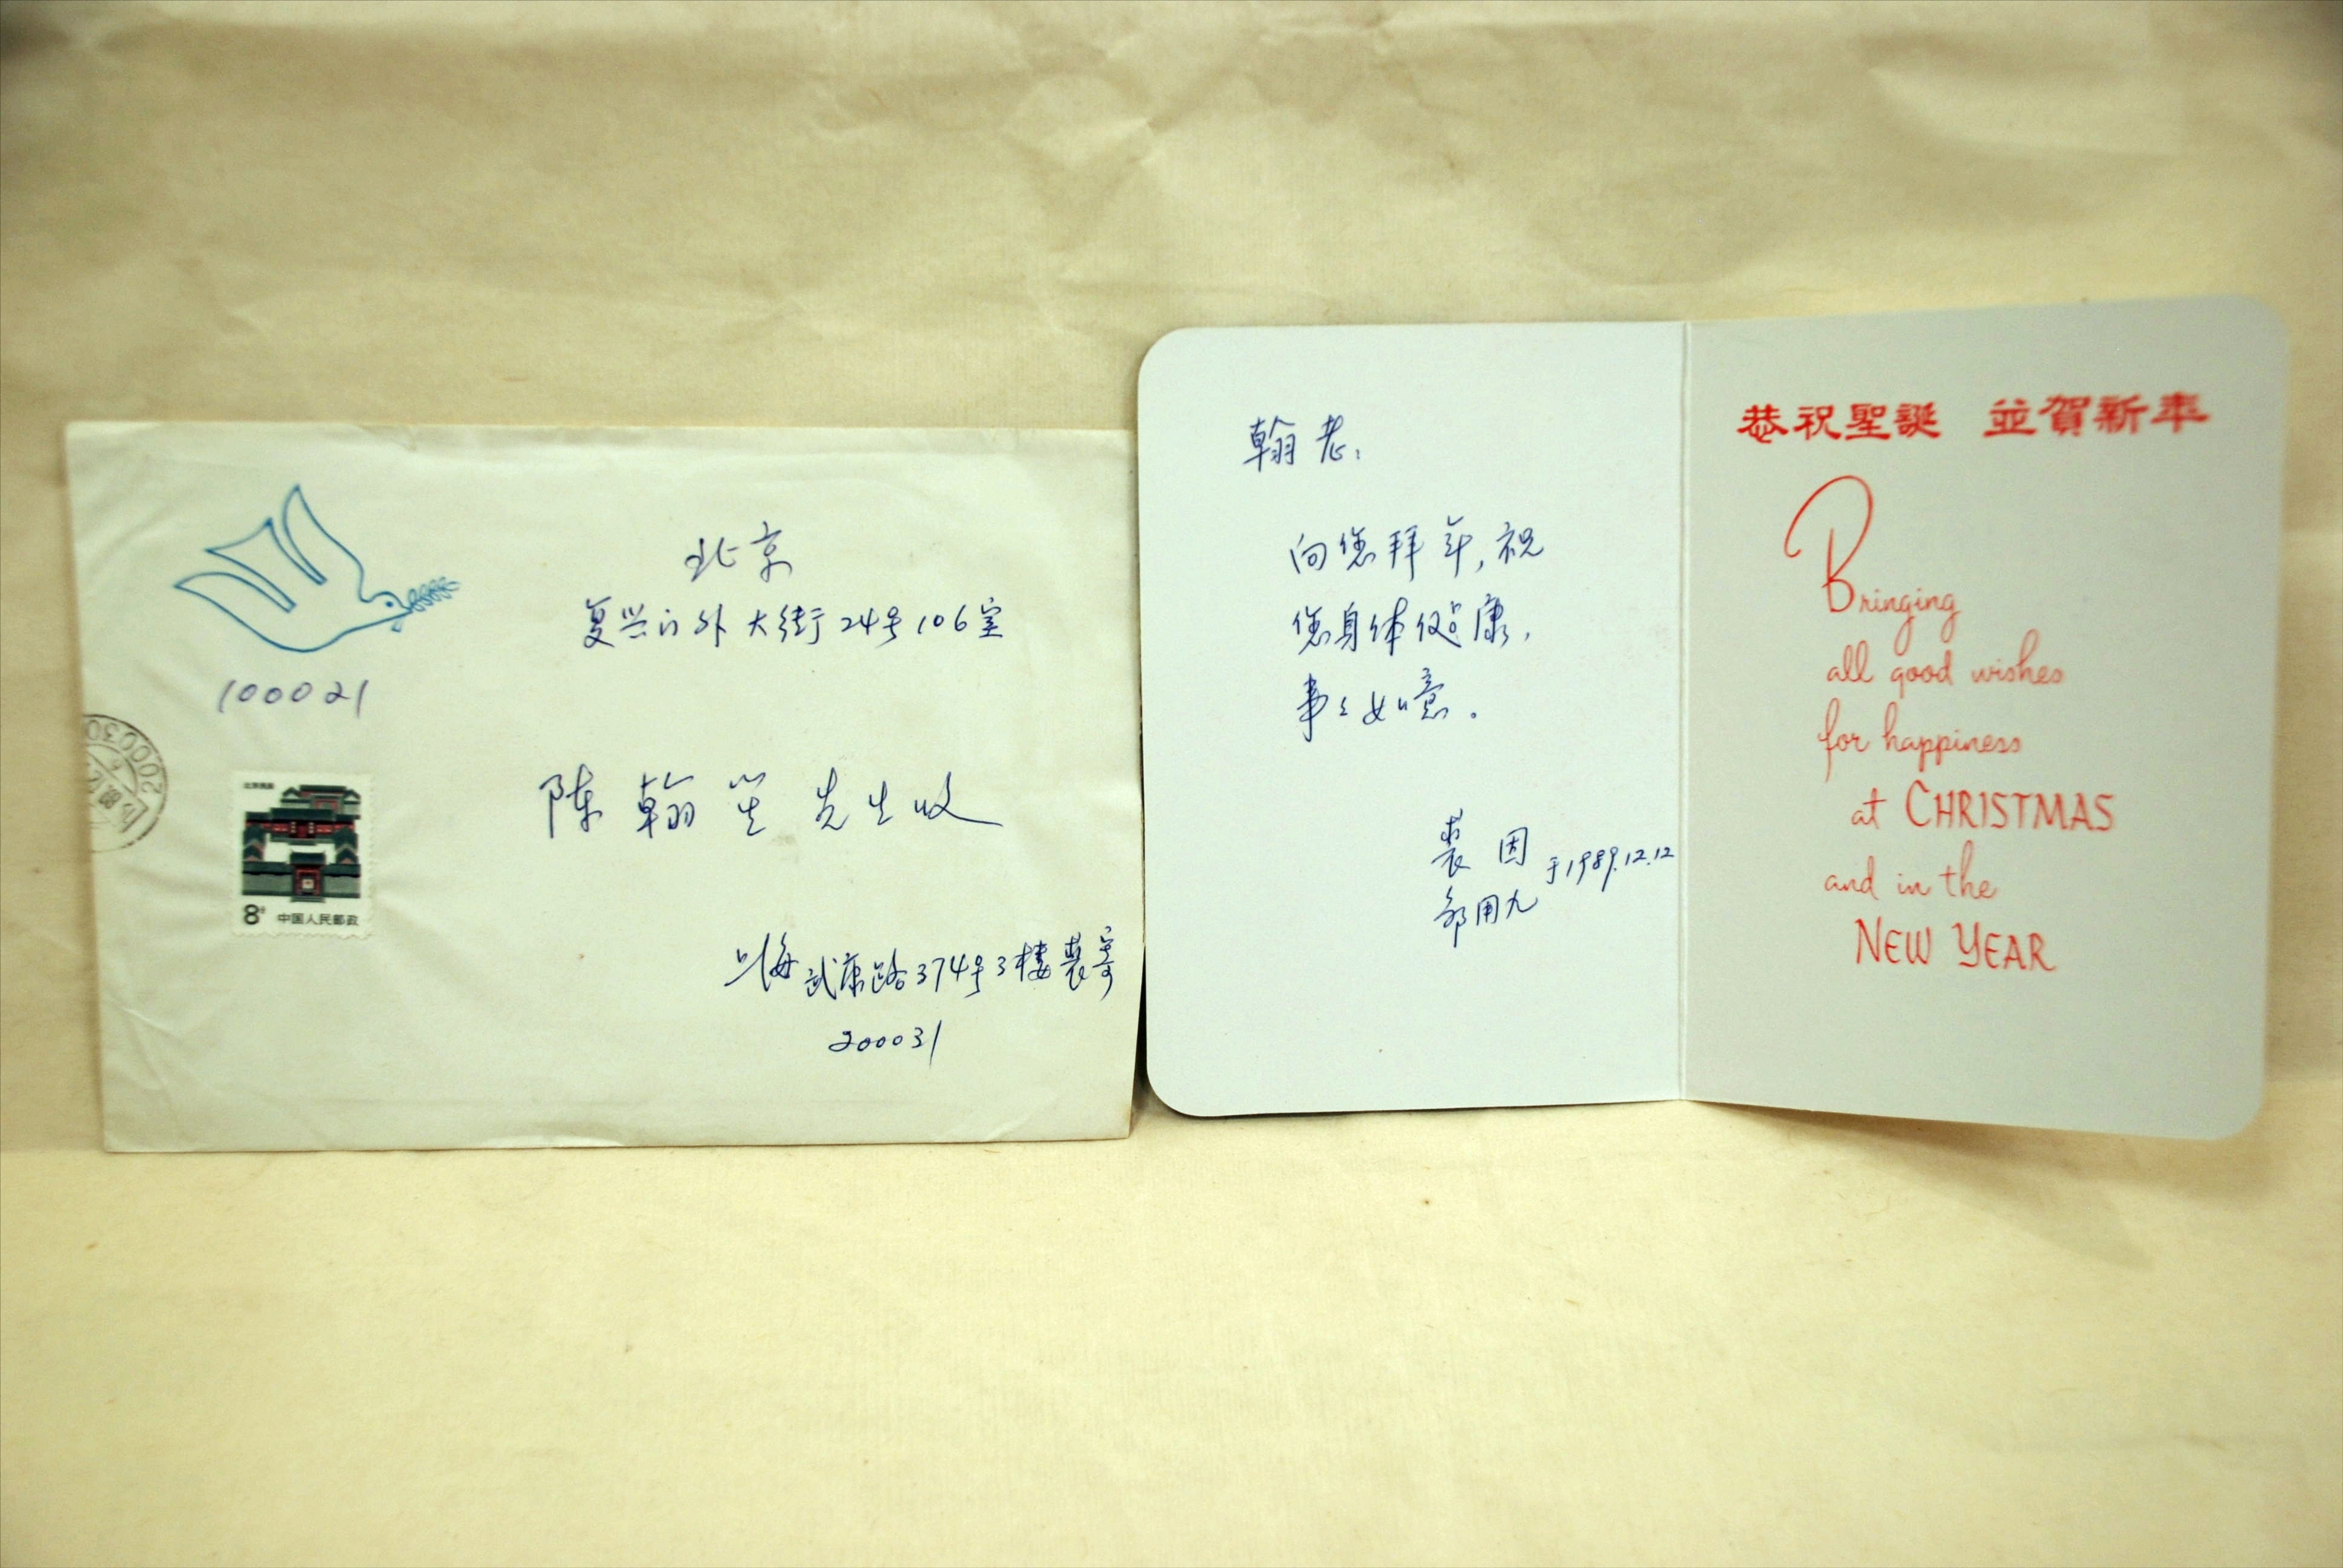 北京
复兴门外大街24号106室
100021
陈翰笙先生收
北京民居
8分 中国人民邮政
上海武康路374号3楼裘寄
200031
200030
翰老:
向您拜年,祝
您身体健康,
事々如意。
裘因
邹用九
于1989.12.12
恭祝聖誕 並賀新年
Bringing
all good wishes
for happiness
at CHRISTMAS
and in the
NEW YEAR